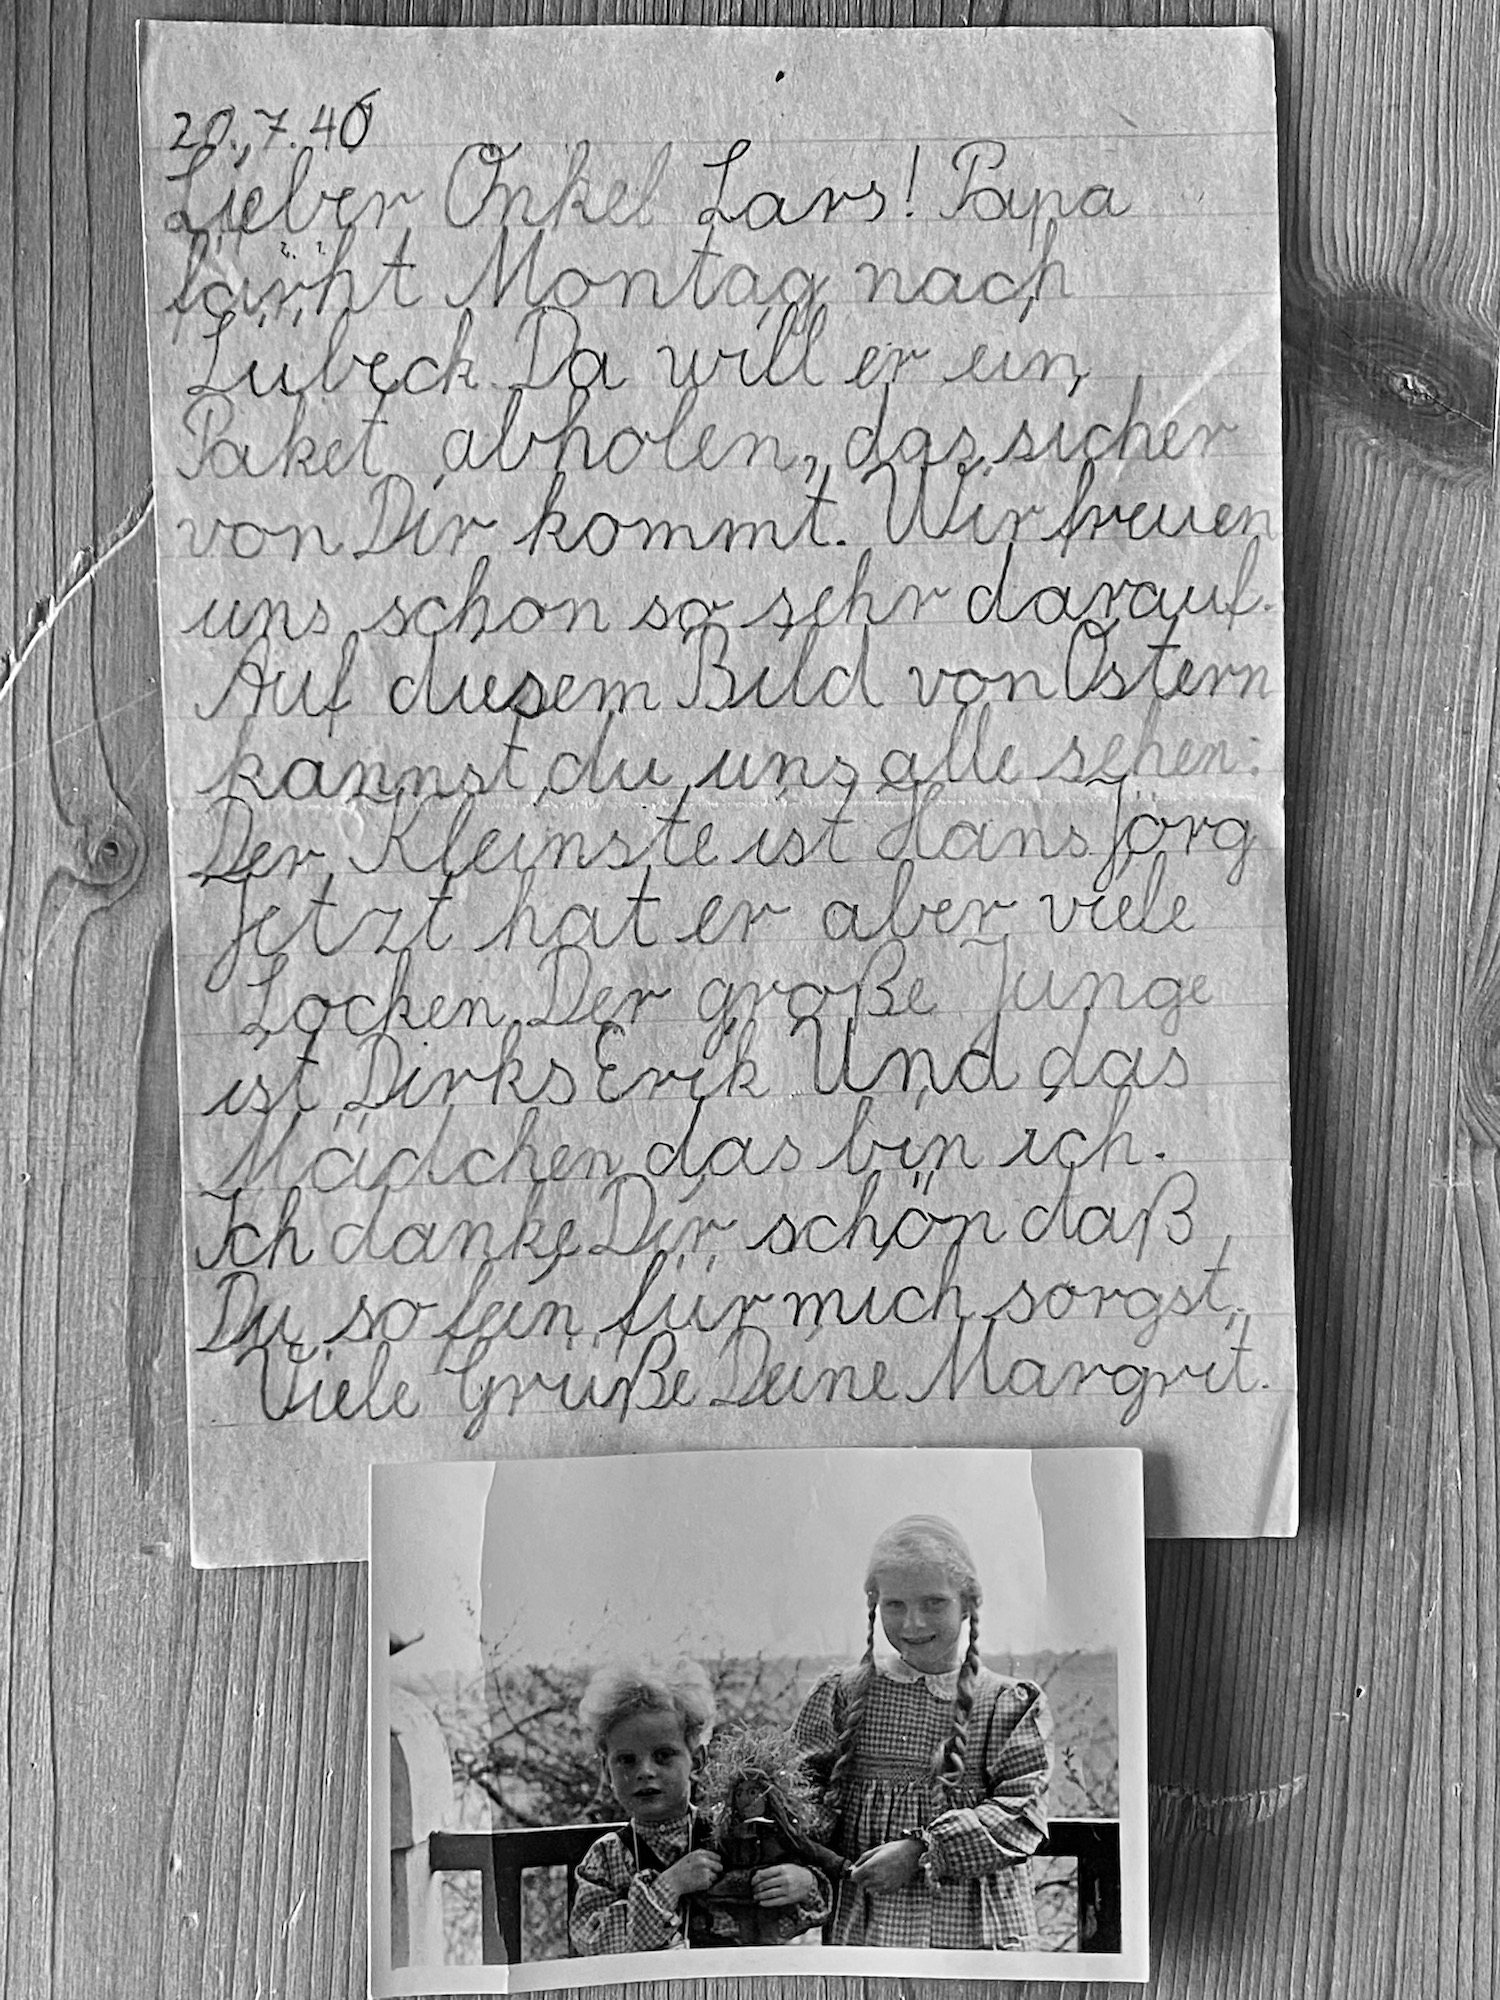 20.7.46
Lieber Onkel Lars! Papa
färht Montag nach
Lübeck. Da will er ein
Paket abholen, das sicher
von Dir kommt. Wir freuen
uns schon so sehr darauf.
Auf diesem Bild von Ostern
kannst du uns alle sehen:
Der Kleinste ist Hans Jörg
Jetzt hat er aber viele
Locken. Der große Junge
ist Dirks Erik Und das
Mädchen das bin ich.
Ich danke Dir schön daß
Du so fein für mich sorgst.
Viele Grüße Deine Margrit.